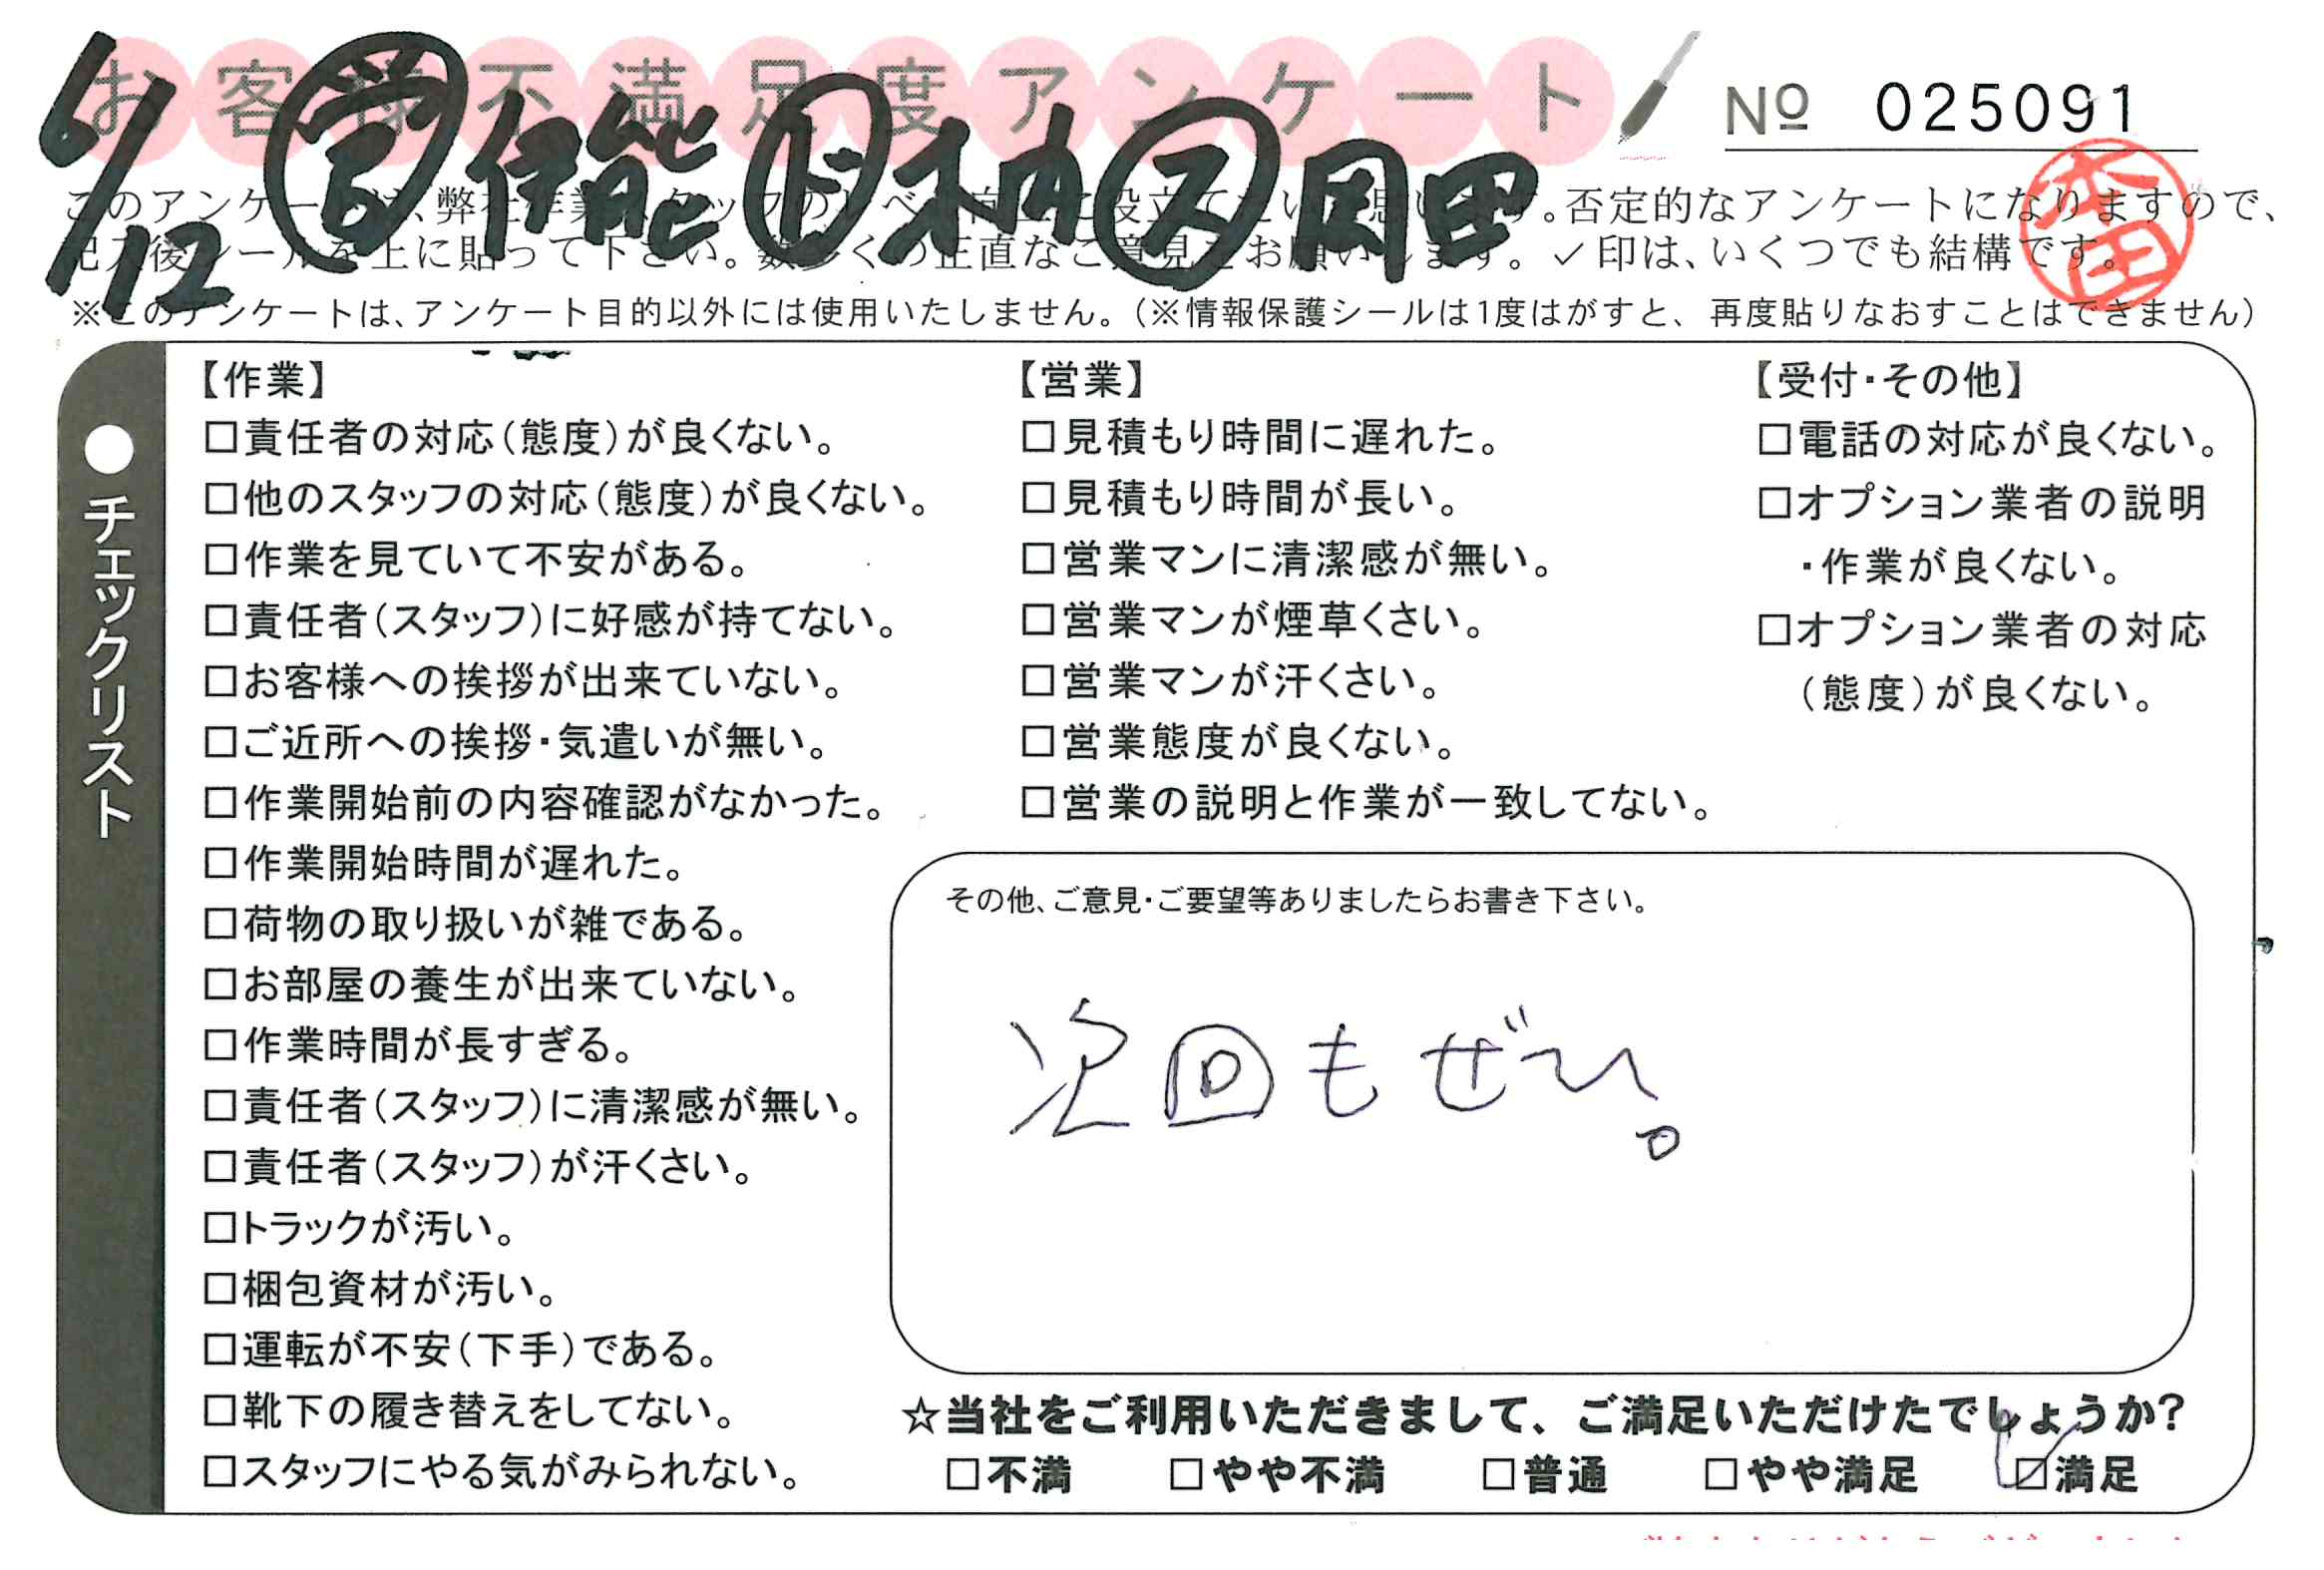 お客様不満足度アンケート
№ 025091
6/12 伊能 ド 柚 ス 岡田
このアンケートは、弊社作業スタッフのレベル向上に役立てたいと思います。否定的なアンケートになりますので、
記入後シールを上に貼って下さい。数多くの正直なご意見をお願いします。✓印は、いくつでも結構です。
本田
※このアンケートは、アンケート目的以外には使用いたしません。(※情報保護シールは1度はがすと、再度貼りなおすことはできません)
●チェックリスト
【作業】
□責任者の対応(態度)が良くない。
□他のスタッフの対応(態度)が良くない。
□作業を見ていて不安がある。
□責任者(スタッフ)に好感が持てない。
□お客様への挨拶が出来ていない。
□ご近所への挨拶・気遣いが無い。
□作業開始前の内容確認がなかった。
□作業開始時間が遅れた。
□荷物の取り扱いが雑である。
□お部屋の養生が出来ていない。
□作業時間が長すぎる。
□責任者(スタッフ)に清潔感が無い。
□責任者(スタッフ)が汗くさい。
□トラックが汚い。
□梱包資材が汚い。
□運転が不安(下手)である。
□靴下の履き替えをしてない。
□スタッフにやる気がみられない。
【営業】
□見積もり時間に遅れた。
□見積もり時間が長い。
□営業マンに清潔感が無い。
□営業マンが煙草くさい。
□営業マンが汗くさい。
□営業態度が良くない。
□営業の説明と作業が一致してない。
【受付・その他】
□電話の対応が良くない。
□オプション業者の説明
・作業が良くない。
□オプション業者の対応
(態度)が良くない。
その他、ご意見・ご要望等ありましたらお書き下さい。
次回もぜひ。
☆当社をご利用いただきまして、ご満足いただけたでしょうか?
□不満 □やや不満 □普通 □やや満足 ☑満足